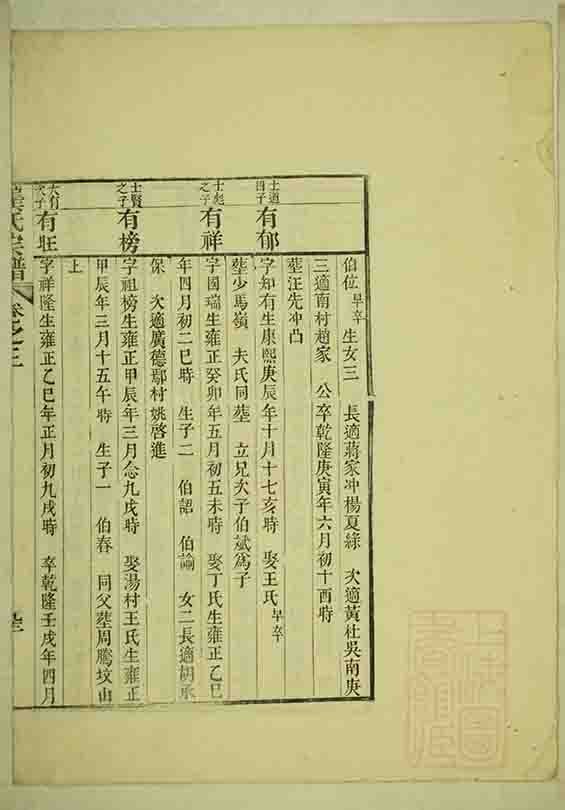 伯位 早卒 生女三 長適蔣家冲楊夏綠 次適黃杜吳南庚
三適南村趙家 公卒乾隆庚寅年六月初十酉時
塟汪先冲凸
士道
四子
有郁
字知有生康熙庚辰年十月十七亥時 娶王氏 早卒
塟少馬嶺 夫氏同塟 立兄次子伯斌爲子
士彪
之子
有祥
字國瑞生雍正癸卯年五月初五未時 娶丁氏生雍正乙巳
年四月初二巳時 生子二 伯韶 伯諭 女二長適胡承
保 次適廣德鄢村姚啓進
士賢
之子
有榜
字祖榜生雍正甲辰年三月念九戌時 娶湯村王氏生雍正
甲辰年三月十五午時 生子一 伯春 同父塟周鵬坟山
上
大有
次子
有旺
字祥隆生雍正乙巳年正月初九戌時 卒乾隆壬戌年四月
氏宗譜 卷之三